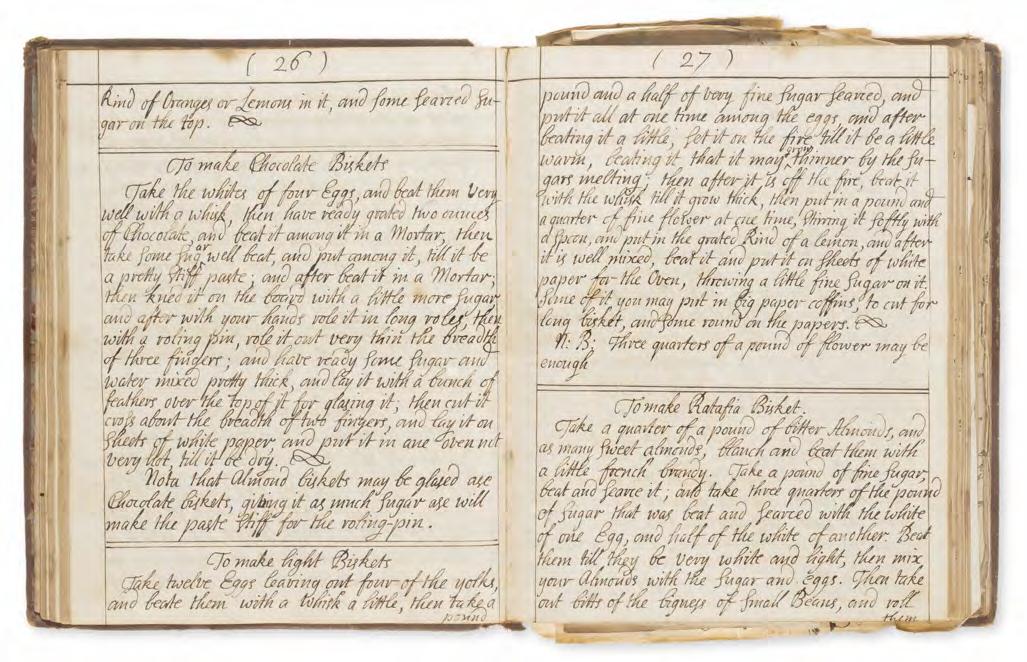 ( 26 )
Rind of Oranges or Lemons in it, and some searced Su-
gar on the top.
To make Chocolate Biskets
Take the whites of four Eggs, and beat them very
well with a whisk, then have ready grated two ounces
of Chocolate, and beat it among it in a Mortar, then
take some Sugar well beat, and put among it, till it be
a pretty stiff paste; and after beat it in a Mortar;
then kned it on the board with a little more Sugar
and after with your hands role it in long roles, then
with a roling pin, role it out very thin the breadth
of three fingers; and have ready some Sugar and
water mixed pretty thick, and lay it with a bunch of
feathers over the top of it for glasing it; then cut it
cross about the breadth of two fingers, and lay it on
sheets of white paper and put it in ane oven not
very hot, till it be dry.
Nota that Almond biskets may be glased ase
Chocolate biskets, giving it as much Sugar ase will
make the paste stiff for the roling-pin.
To make light Biskets
Take twelve Eggs leaving out four of the yolks,
and beate them with a Whisk a little, then take a
pound
( 27 )
pound and a half of very fine Sugar searced, and
put it all at one time among the eggs, and after
beating it a little, set it on the fire till it be a little
warm, beating it that it may grow thinner by the su-
gars melting: then after it is off the fire, beat it
with the whisk till it grow thick, then put in a pound and
a quarter of fine flower at one time, stirring it softly with
a spoon, and put in the grated Rind of a lemon, and after
it is well mixed, beat it and put it on sheets of white
paper for the Oven, throwing a little fine Sugar on it.
Some of it you may put in big paper coffins, to cut for
long bisket, and some round on the papers.
N: B: Three quarters of a pound of flower may be
enough
To make Ratafia Bisket.
Take a quarter of a pound of bitter Almonds, and
as many sweet almonds, blanch and beat them with
a little french brandy. Take a pound of fine Sugar,
beat and searce it; and take three quarters of the pound
of sugar that was beat and searced with the white
of one Egg, and half of the white of another. Beat
them till they be very white and light, then mix
your Almonds with the Sugar and Eggs. Then take
out bitts of the bigness of small Beans, and roll
them